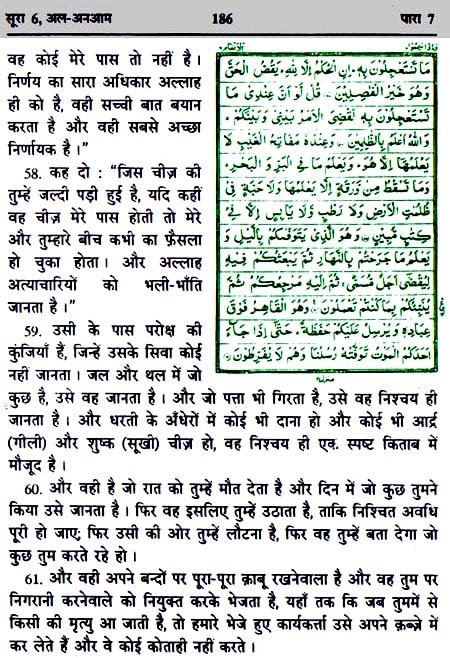 सूरा 6, अल-अनआम
186
पारा 7
वह कोई मेरे पास तो नहीं है।
निर्णय का सारा अधिकार अल्लाह
ही को है, वही सच्ची बात बयान
करता है और वही सबसे अच्छा
निर्णायक है।”
58. कह दो : “जिस चीज़ की
तुम्हें जल्दी पड़ी हुई है, यदि कहीं
वह चीज़ मेरे पास होती तो मेरे
और तुम्हारे बीच कभी का फ़ैसला
हो चुका होता। और अल्लाह
अत्याचारियों को भली-भाँति
जानता है।”
59. उसी के पास परोक्ष की
कुंजियाँ हैं, जिन्हें उसके सिवा कोई
नहीं जानता। जल और थल में जो
مَا تَسْتَعْجِلُونَ بِهٖ اِنِ الْحُكْمُ اِلَّا لِلّٰهِ يَقُصُّ الْحَقَّ
وَهُوَ خَيْرُ الْفٰصِلِيْنَ قُلْ لَّوْ اَنَّ عِنْدِيْ مَا
تَسْتَعْجِلُوْنَ بِهٖ لَقُضِيَ الْاَمْرُ بَيْنِيْ وَبَيْنَكُمْ
وَاللّٰهُ اَعْلَمُ بِالظّٰلِمِيْنَ وَعِنْدَهٗ مَفَاتِحُ الْغَيْبِ لَا
يَعْلَمُهَا اِلَّا هُوَ وَيَعْلَمُ مَا فِي الْبَرِّ وَالْبَحْرِ
وَمَا تَسْقُطُ مِنْ وَّرَقَةٍ اِلَّا يَعْلَمُهَا وَلَا حَبَّةٍ فِيْ
ظُلُمٰتِ الْاَرْضِ وَلَا رَطْبٍ وَّلَا يَابِسٍ اِلَّا فِيْ
كِتٰبٍ مُّبِيْنٍ وَهُوَ الَّذِيْ يَتَوَفّٰىكُمْ بِالَّيْلِ وَ
يَعْلَمُ مَا جَرَحْتُمْ بِالنَّهَارِ ثُمَّ يَبْعَثُكُمْ فِيْهِ
لِيُقْضٰٓى اَجَلٌ مُّسَمًّى ثُمَّ اِلَيْهِ مَرْجِعُكُمْ ثُمَّ
يُنَبِّئُكُمْ بِمَا كُنْتُمْ تَعْمَلُوْنَ وَهُوَ الْقَاهِرُ فَوْقَ
عِبَادِهٖ وَيُرْسِلُ عَلَيْكُمْ حَفَظَةً حَتّٰٓى اِذَا جَآءَ
اَحَدَكُمُ الْمَوْتُ تَوَفَّتْهُ رُسُلُنَا وَهُمْ لَا يُفَرِّطُوْنَ
कुछ है, उसे वह जानता है। और जो पत्ता भी गिरता है, उसे वह निश्चय ही
जानता है। और धरती के अँधेरों में कोई भी दाना हो और कोई भी आर्द्र
(गीली) और शुष्क (सूखी) चीज़ हो, वह निश्चय ही एक स्पष्ट किताब में
मौजूद है।
60. और वही है जो रात को तुम्हें मौत देता है और दिन में जो कुछ तुमने
किया उसे जानता है। फिर वह इसलिए तुम्हें उठाता है, ताकि निश्चित अवधि
पूरी हो जाए; फिर उसी की ओर तुम्हें लौटना है, फिर वह तुम्हें बता देगा जो
कुछ तुम करते रहे हो।
61. और वही अपने बन्दों पर पूरा-पूरा क़ाबू रखनेवाला है और वह तुम पर
निगरानी करनेवाले को नियुक्त करके भेजता है, यहाँ तक कि जब तुममें से
किसी की मृत्यु आ जाती है, तो हमारे भेजे हुए कार्यकर्त्ता उसे अपने क़ब्ज़े में
कर लेते हैं और वे कोई कोताही नहीं करते।